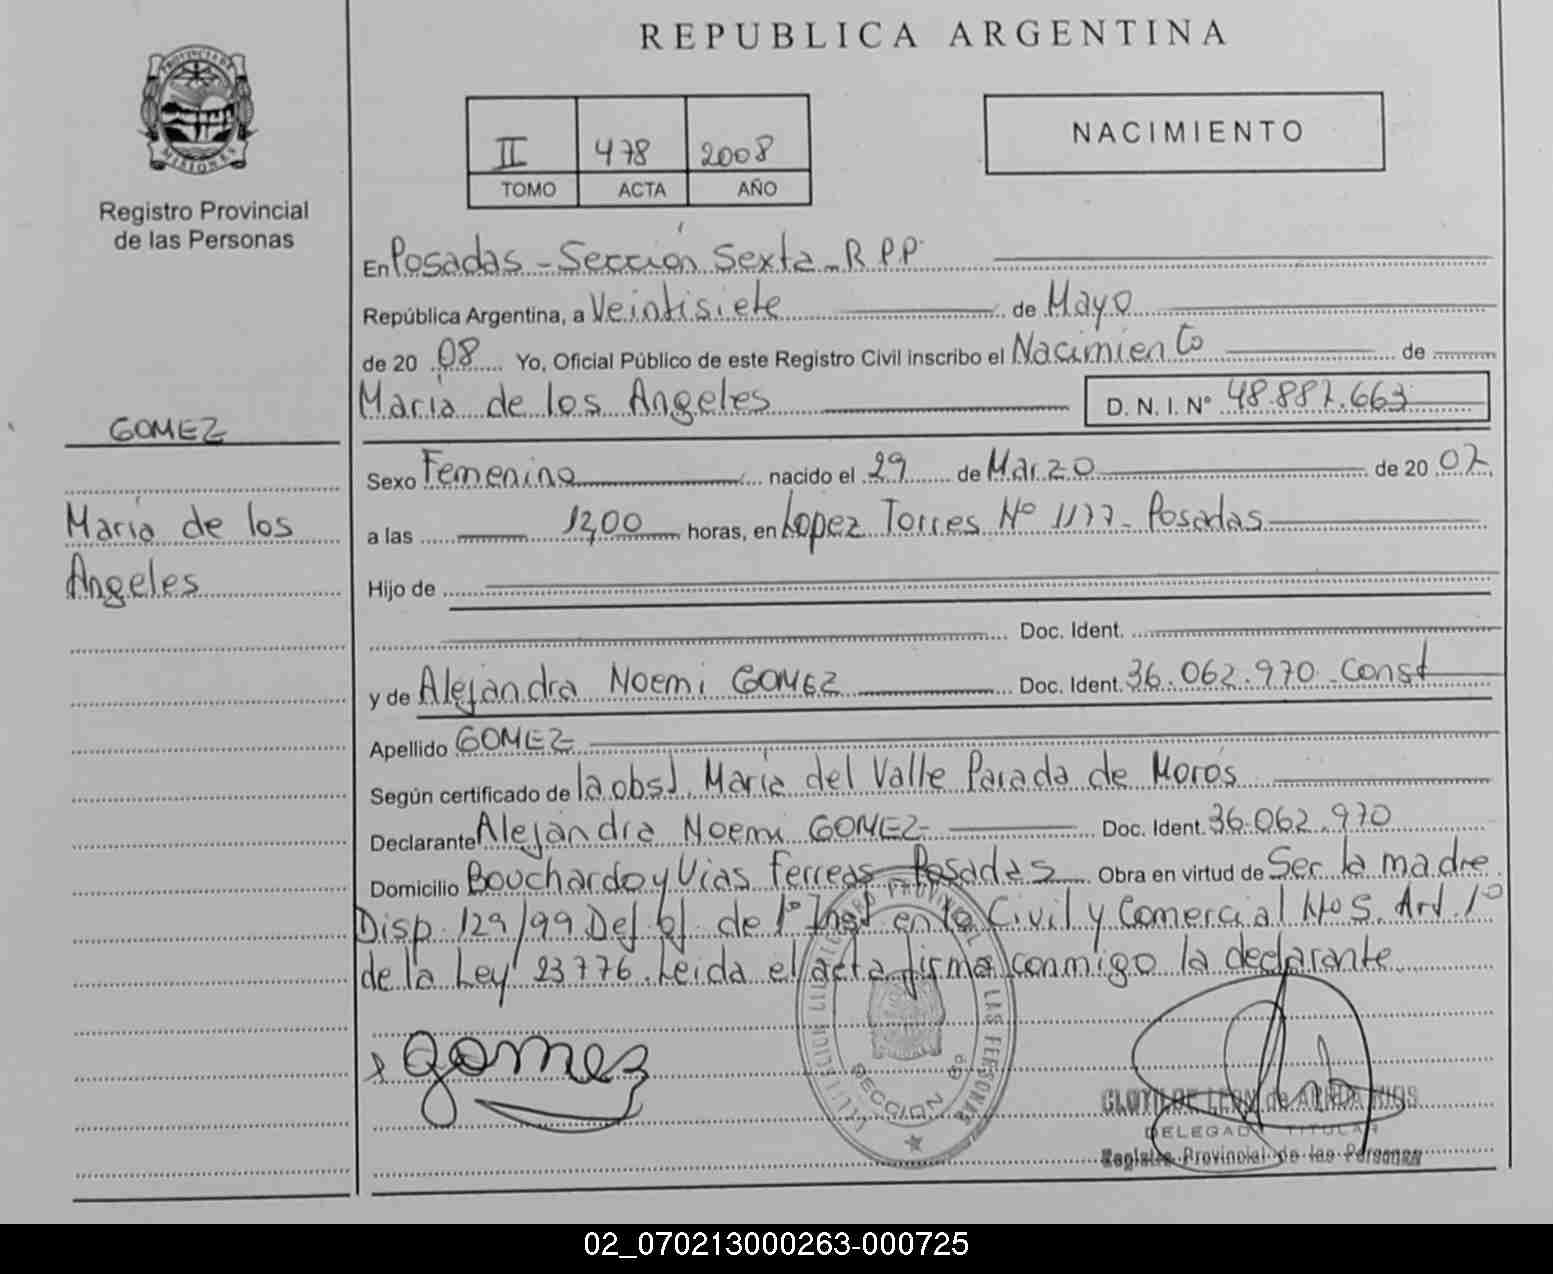 REPUBLICA ARGENTINA
PROVINCIA DE
MISIONES
Registro Provincial
de las Personas
II 478 2008
TOMO ACTA AÑO
NACIMIENTO
En Posadas - Sección Sexta - R.P.P.
República Argentina, a Veintisiete de Mayo
de 20 08 Yo, Oficial Público de este Registro Civil inscribo el Nacimiento de
María de los Angeles D. N. I. Nº 48.887.663
GOMEZ
María de los
Angeles
Sexo Femenino nacido el 29 de Marzo de 20 07
a las 12,00 horas, en Lopez Torres Nº 1177 - Posadas
Hijo de
Doc. Ident.
y de Alejandra Noemi GOMEZ Doc. Ident. 36.062.970. Const
Apellido GOMEZ
Según certificado de la obst. María del Valle Parada de Morós
Declarante Alejandra Noemi GOMEZ Doc. Ident. 36.062.970
Domicilio Bouchardo y Vias Ferreas - Posadas Obra en virtud de Ser la madre.
Disp. 129/99 Def. of. de 1º Inst en lo Civil y Comercial Nº 5. Art. 1º
de la Ley 23776. Leida el acta firma conmigo la declarante
gomez
REGISTRO PROVINCIAL DE LAS PERSONAS
SECCION 6º
CLOTILDE LEON de
DELEGADA TITULAR
Registro Provincial de las Personas
02_070213000263-000725